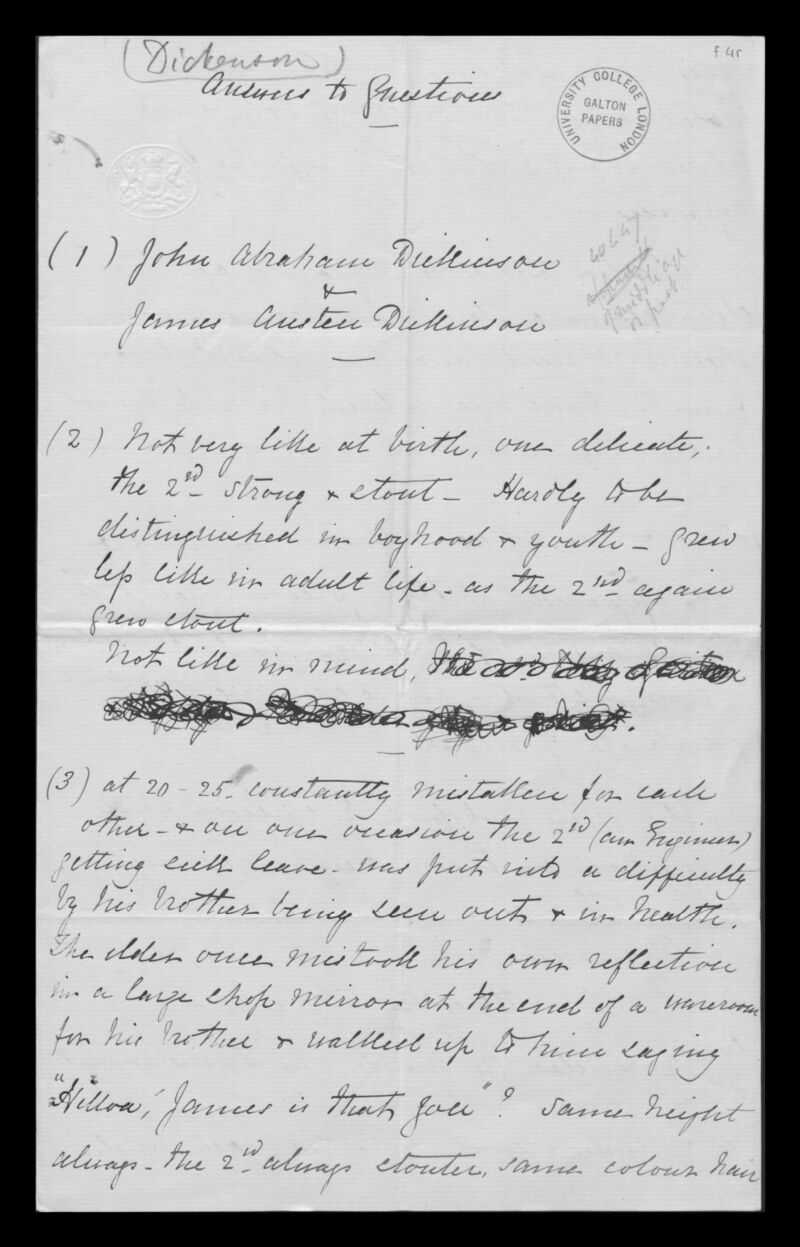 (Dickenson)
f. 45
Answers to Questions
UNIVERSITY COLLEGE LONDON
GALTON
PAPERS
(1) John Abraham Dickinson
&
James Austen Dickinson
of middle age
(2) Not very like at birth, one delicate,
the 2nd strong & stout – Hardly to be
distinguished in boyhood & youth – grew
less like in adult life – as the 2nd again
grew stout.
Not like in mind,
(3) at 20 – 25 – constantly mistaken for each
other – & on one occasion the 2nd (an Engineer)
getting sick leave – was put into a difficulty
by his brother being seen out & in health.
The elder once mistook his own reflection
in a large shop mirror at the end of a wareroom
for his brother & walked up to him saying
"Hilloa, James is that you"? Same height
always – the 2nd always stouter, same colour hair